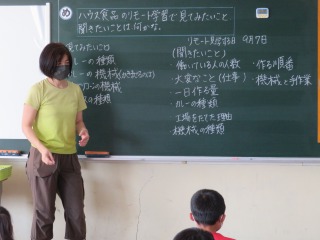 め ハウス食品のリモート学習で見てみたいこと
聞きたいことは何かな。
リモート見学する日 9月7日
見てみたいこと
ルーの種類
ルーの機械
の機械
の種類
(聞きたいこと)
・働いている人の人数
・大変なこと(仕事)
・一日作る量
・ルーの種類
・工場をたてた理由
・機械の種類
・作る順番
・機械と手作業